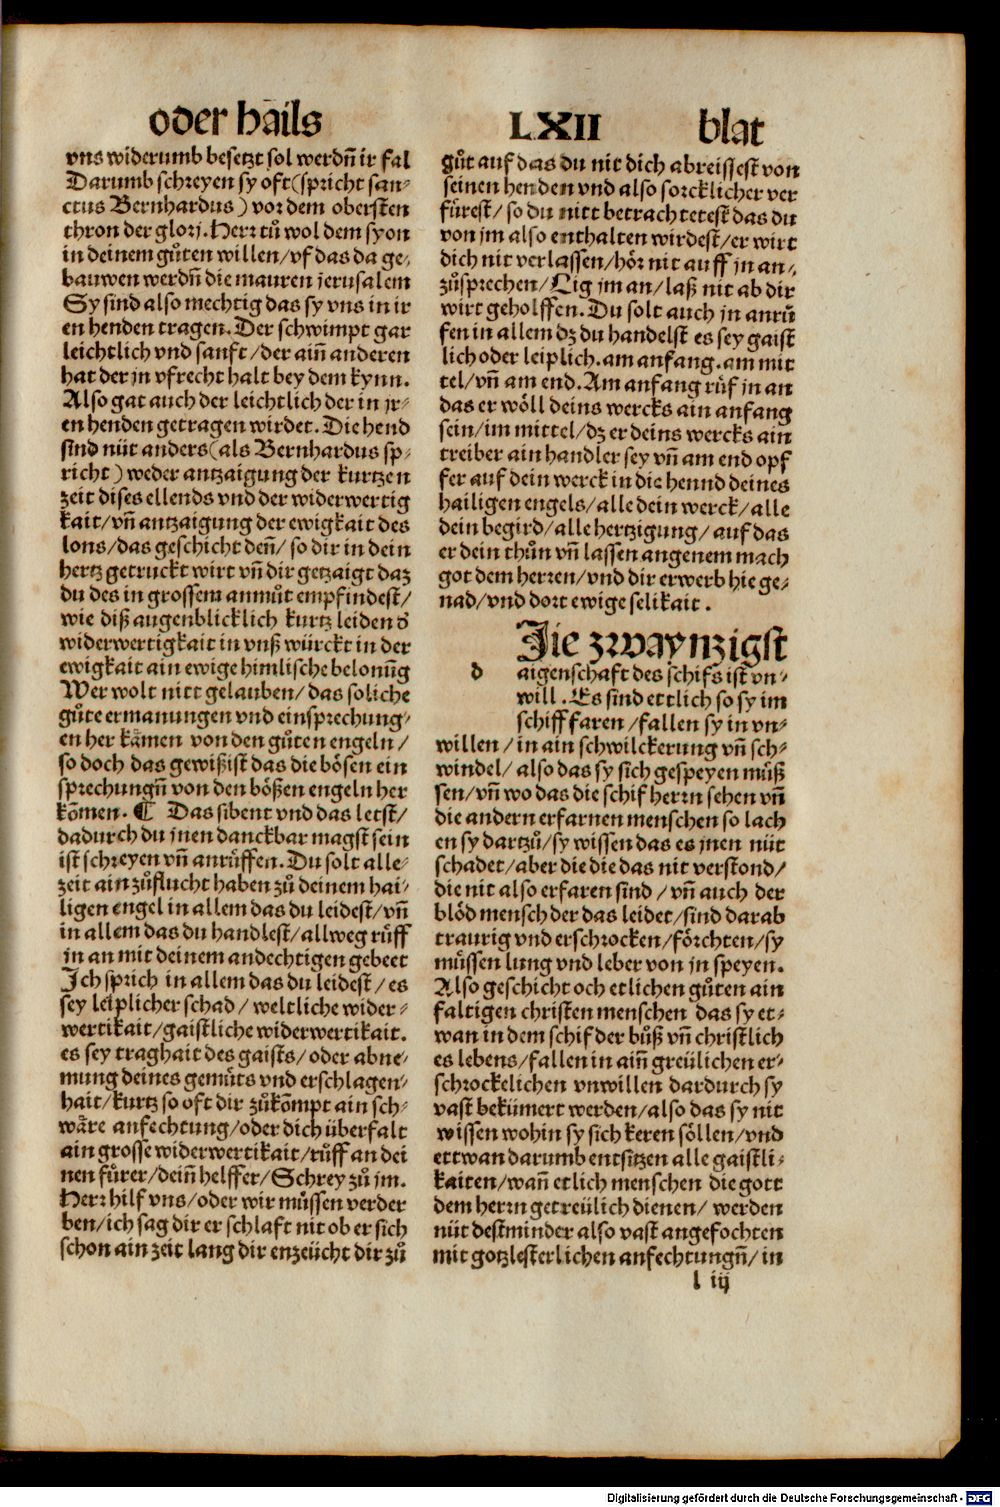 oder hails LXII blat
vns widerumb besetzt sol werdn̄ ir fal
Darumb schreyen sy oft (spricht san⸗
ctus Bernhardus) vor dem obersten
thron der glorj. Herr tů wol dem syon
in deinem gůten willen/vf das da ge⸗
bauwen werdn̄ die mauren jerusalem
Sy sind also mechtig das sy vns in ir
en henden tragen. Der schwimpt gar
leichtlich vnd sanft/der ain̄ anderen
hat der jn vfrecht halt bey dem kynn.
Also gat auch der leichtlich der in jr⸗
en henden getragen wirdet. Die hend
sind nüt anders (als Bernhardus sp⸗
richt) weder antzaigung der kurtzen
zeit dises ellends vnd der widerwertig
kait/vn̄ antzaigung der ewigkait des
lons/das geschicht den̄/so dir in dein
hertz getruckt wirt vn̄ dir getzaigt daz
du des in grossem anmůt empfindest/
wie diß augenblicklich kurtz leiden d̄
widerwertigkait in vnß würckt in der
ewigkait ain ewige himlische belonūg
Wer wolt nitt gelauben/das soliche
gůte ermanungen vnd einsprechung⸗
en her kämen von den gůten engeln/
so doch das gewißist das die bösen ein
sprechungn̄ von den bößen engeln her
kōmen. ¶ Das sibent vnd das letst/
dadurch du jnen danckbar magst sein
ist schreyen vn̄ anrůffen. Du solt alle⸗
zeit ain zůflucht haben zů deinem hai⸗
ligen engel in allem das du leidest/vn̄
in allem das du handlest/allweg růff
jn an mit deinem andechtigen gebeet
Ich sprich in allem das du leidest/es
sey leiplicher schad/weltliche wider⸗
wertikait/gaistliche widerwertikait.
es sey traghait des gaists/oder abne⸗
mung deines gemůts vnd erschlagen⸗
hait/kurtz so oft dir zůkōmpt ain sch⸗
wäre anfechtung/oder dich überfalt
ain grosse widerwertikait/růff an dei
nen fůrer/dein̄ helffer/Schrey zů jm.
Herr hilf vns/oder wir müssen verder
ben/ich sag dir er schlaft nit ob er sich
schon ain zeit lang dir enzeücht dir zů
gůt auf das du nit dich abreissest von
seinen henden vnd also sorcklicher ver
fürest/so du nitt betrachtetest das du
von jm also enthalten wirdest/er wirt
dich nit verlassen/hör nit auff jn an⸗
zůsprechen/Lig jm an/laß nit ab dir
wirt geholffen. Du solt auch jn anrů
fen in allem dz du handelst es sey gaist
lich oder leiplich. am anfang. am mit
tel/vn̄ am end. Am anfang růf jn an
das er wöll deins wercks ain anfang
sein/im mittel/dz er deins wercks ain
treiber ain handler sey vn̄ am end opf
fer auf dein werck in die hennd deines
hailigen engels/alle dein werck/alle
dein begird/alle hertzigung/auf das
er dein thůn vn̄ lassen angenem mach
got dem herren/vnd dir erwerb hie ge⸗
nad/vnd dort ewige selikait.
Jie zwaynzigst
d aigenschaft des schifs ist vn⸗
will. Es sind ettlich so sy im
schiff faren/fallen sy in vn⸗
willen/in ain schwilckerung vn̄ sch⸗
windel/also das sy sich gespeyen müß
sen/vn̄ wo das die schif herrn sehen vn̄
die andern erfarnen menschen so lach
en sy dartzů/sy wissen das es jnen nüt
schadet/aber die die das nit verstond/
die nit also erfaren sind/vn̄ auch der
blöd mensch der das leidet/sind darab
traurig vnd erschrocken/förchten/sy
müssen lung vnd leber von jn speyen.
Also geschicht och etlichen gůten ain
faltigen christen menschen das sy et⸗
wan in dem schif der bůß vn̄ christlich
es lebens/fallen in ain̄ greülichen er⸗
schrockelichen vnwillen dardurch sy
vast bekümert werden/also das sy nit
wissen wohin sy sich keren söllen/vnd
ettwan darumb entsitzen alle gaistli⸗
kaiten/wan̄ etlich menschen die gott
dem herrn getreülich dienen/werden
nüt destminder also vast angefochten
mit gotzlesterlichen anfechtungn̄/in
l iij
Digitalisierung gefördert durch die Deutsche Forschungsgemeinschaft - DFG